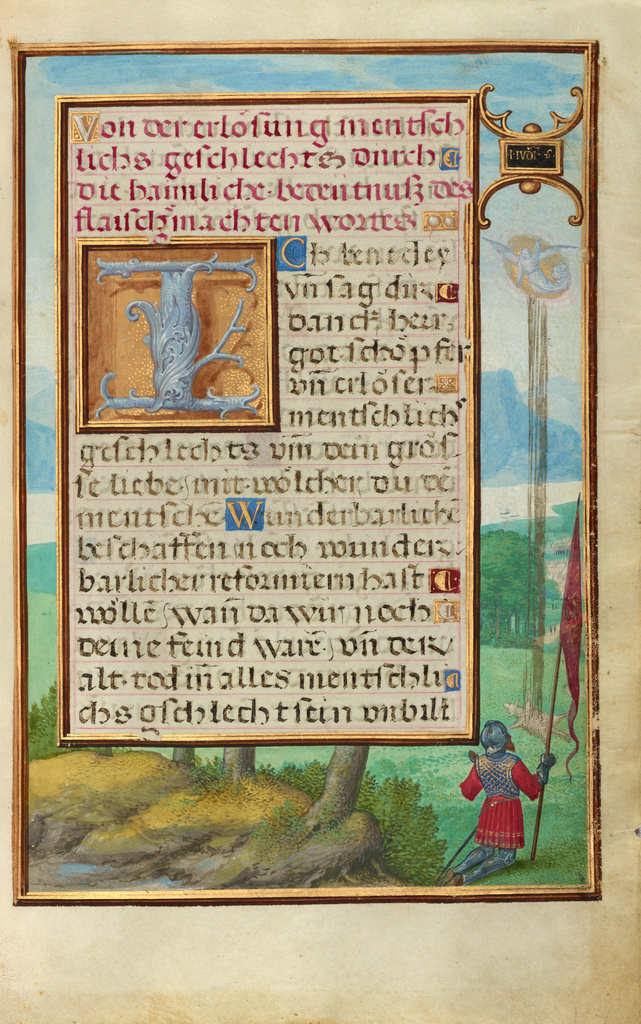 Von der erlösung mentsch
lichs geschlechts durch
die haimliche bedeutnusz des
flaischgmachten wortes
I·IVDI·6·
ICh benedey
vñ sag dir
danck herr
got schöpfer
vñ erlöser
mentschlichs
geschlechts vm dein grös
se liebe, mit wölcher du dē
mentsche Wunderbarlichē
beschaffen, noch wunder
barlicher reformiern hast
wöllē, wañ da wir noch
deine feind warē, vñ der
alt tod iñ alles mentschli
chs gschlecht sein vnbilt